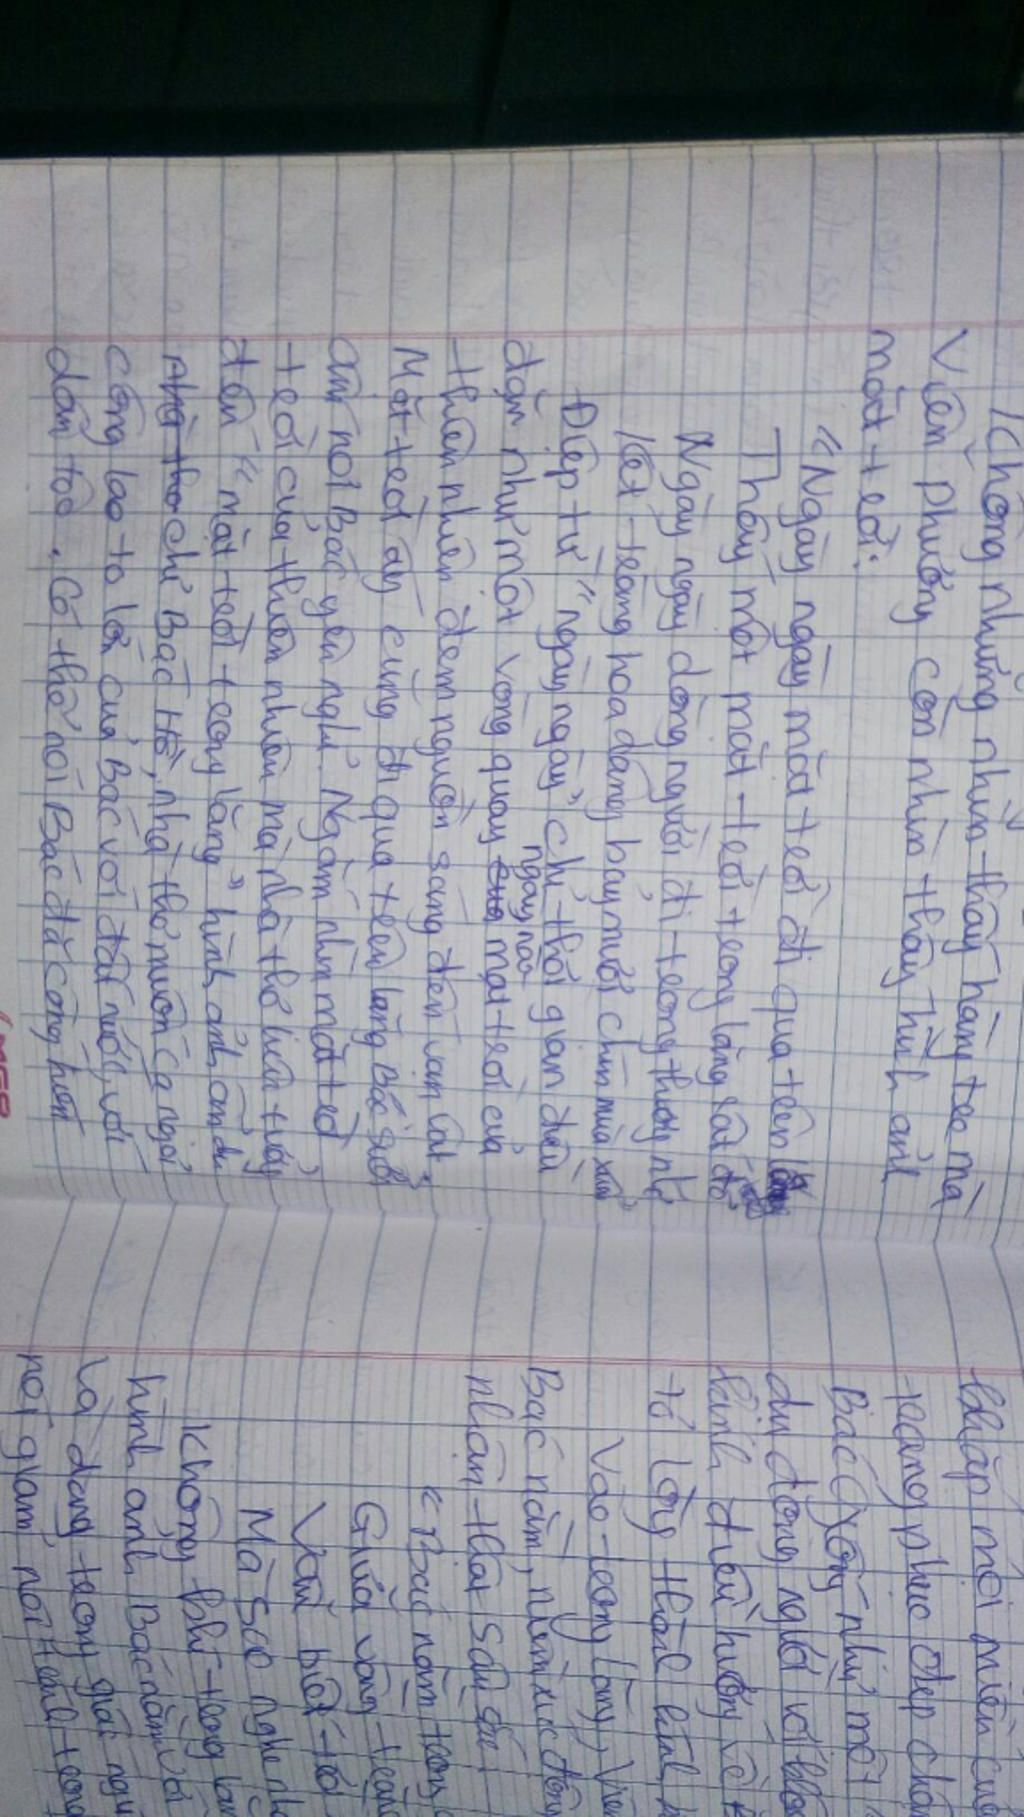 Không những nhìn thấy hàng tre mà
Viễn Phương còn nhìn thấy hình ảnh
mặt trời:
"Ngày ngày mặt trời đi qua trên lăng
Thấy một mặt trời trong lăng rất đỏ
Ngày ngày dòng người đi trong thương nhớ
Kết tràng hoa dâng bảy mươi chín mùa xuân"
Điệp từ "ngày ngày" chỉ thời gian đều
đặn như một vòng quay ngày nào mặt trời của
thiên nhiên đem nguồn sáng đến vạn vật
Mặt trời ấy cũng đi qua trên lăng Bác
âm nơi Bác yên nghỉ. Ngắm nhìn mặt trời
trời của thiên nhiên mà nhà thơ liên
đến "mặt trời trong lăng" hình ảnh ẩn dụ
chỉ Bác Hồ, nhà thơ muốn ca ngợi
công lao to lớn của Bác với đất nước, với
dân tộc. Có thể nói Bác đã cống hiến
khắp mọi miền
trang phục đẹp
Bác
dụ dòng người với
kính
tỏ lòng thành kính
Vào trong lăng, Viễn
Bác nằm, niềm xúc động
nhận
"Bác nằm trong
Giữa vầng trăng
Vẫn biết trời
Mà sao nghe
Không khí trong
hình ảnh Bác nằm
Và đang trong giấc ngủ
nơi